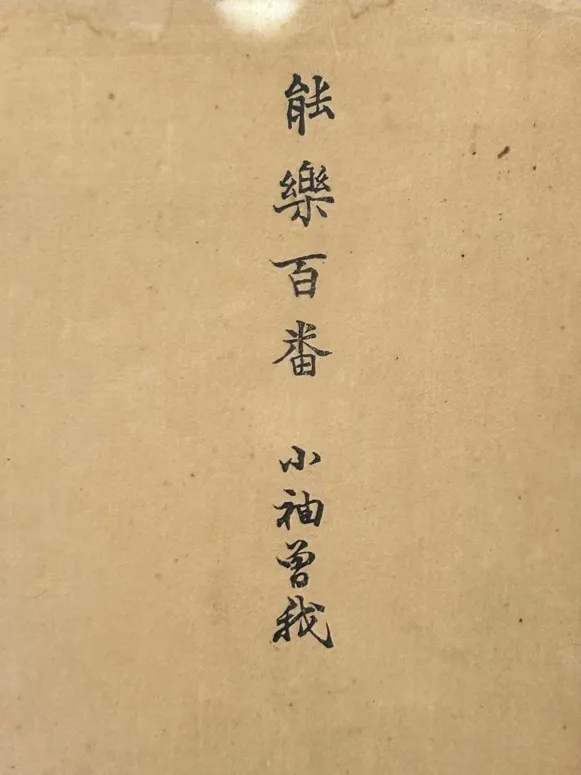 能樂百番 小袖曽我